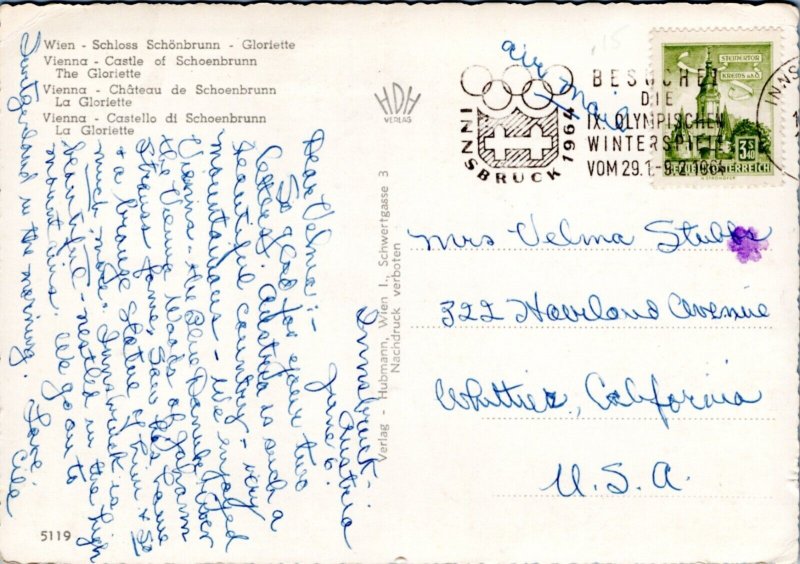 Wien - Schloss Schönbrunn - Gloriette
Vienna - Castle of Schoenbrunn
The Gloriette
Vienna - Château de Schoenbrunn
La Gloriette
Vienna - Castello di Schoenbrunn
La Gloriette
HDH
VERLAG
15
air mail
INNSBRUCK 1964
BESUCHET
DIE
IX. OLYMPISCHEN
WINTERSPIELE
VOM 29.1.-9.2.1964
INNS
STEINERTOR
KREMS a.d.D.
3S40
REPUBLIK ÖSTERREICH
Innsbruck -
Austria
June 6.
Dear Velma:-
So glad for your two
letters. Austria is such a
beautiful country - very
mountainous - We enjoyed
Vienna - the Blue Danube River
the Vienna Woods of Johann
Strauss fame. Saw his home
+ a bronze Statue of him + so
much more. Innsbruck is
beautiful - nestled in the high
mountains. We go on to
Switzerland in the morning. Love
Verlag - Hubmann, Wien I., Schwertgasse 3
Nachdruck verboten
Mrs Velma Stubbs
322 Haviland Avenue
Whittier, California
U.S.A.
5119